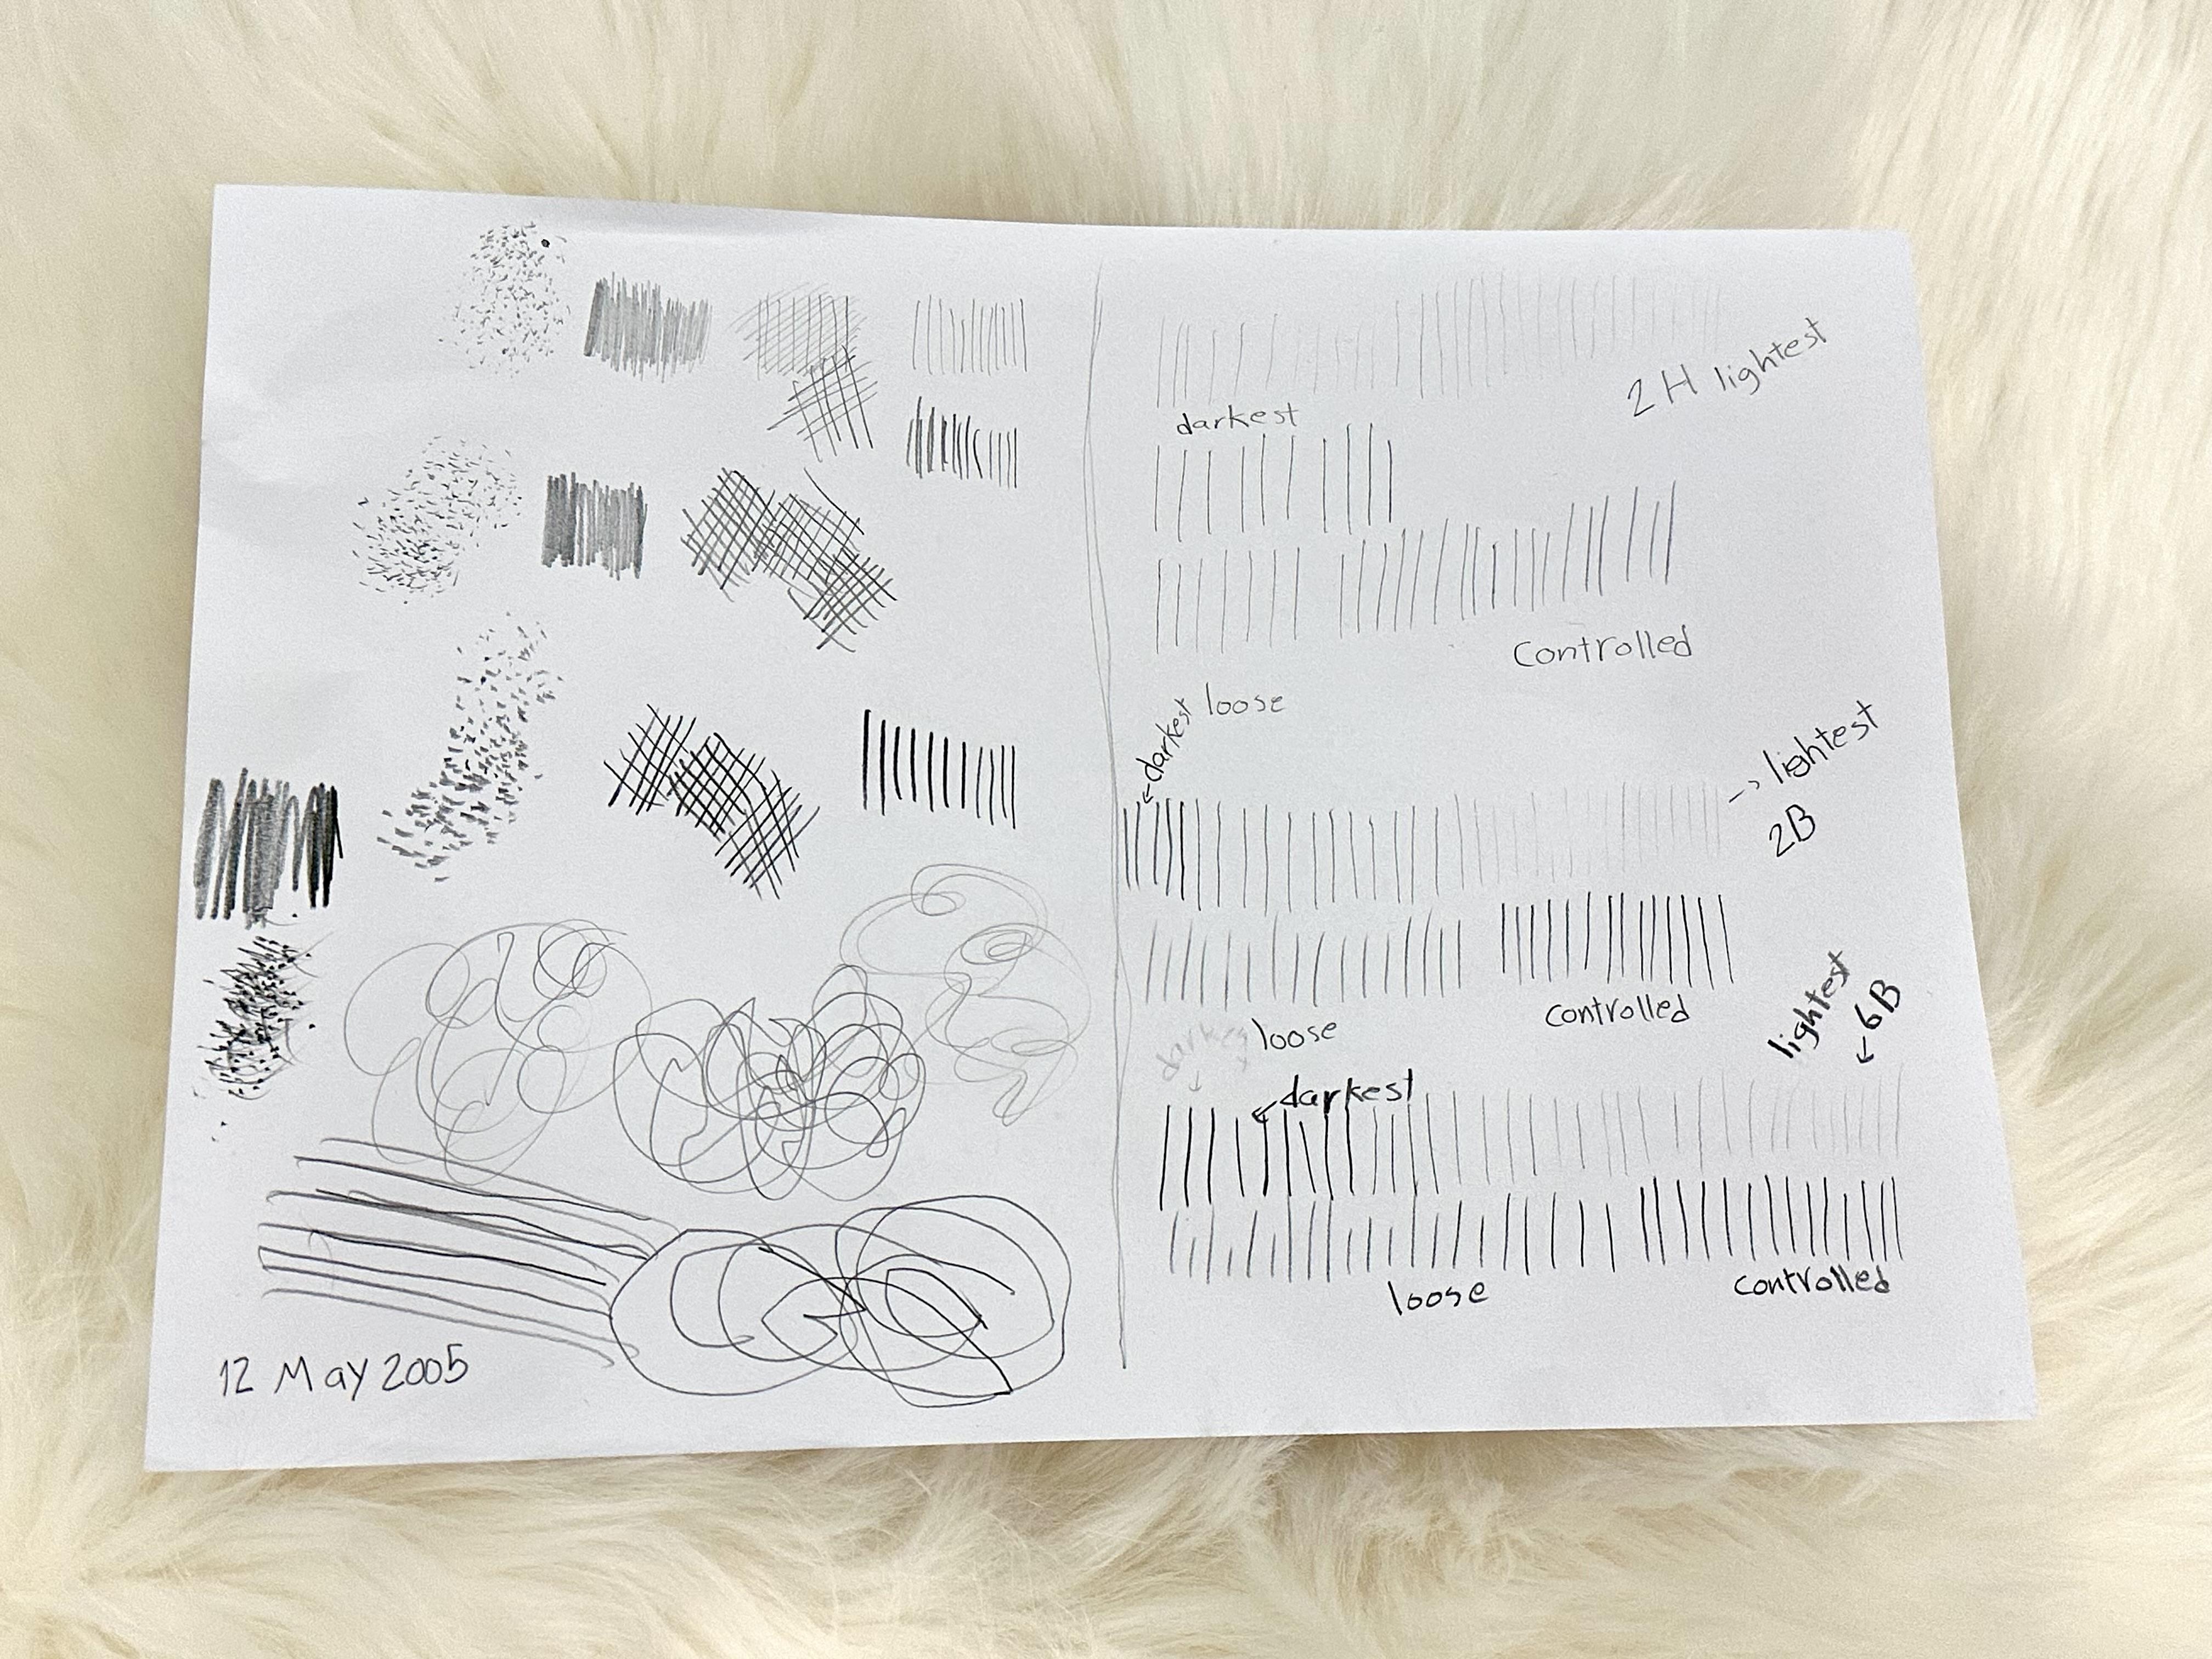 2H lightest
darkest
Controlled
loose
darkest
lightest
2B
controlled
loose
darkest
lightest
6B
darkest
loose
controlled
12 May 2005